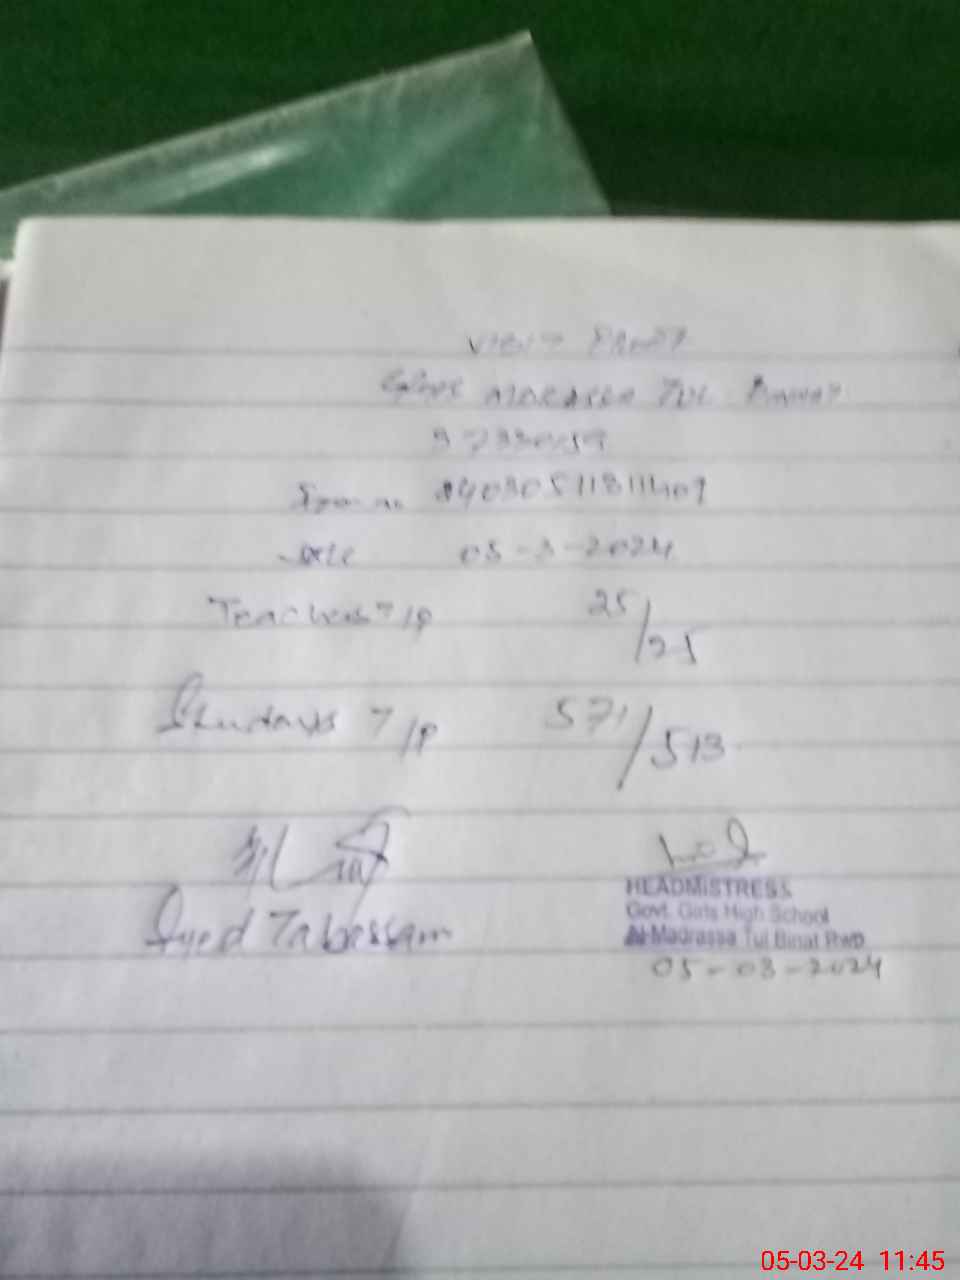 VISIT PROOF
GGHS MADRASSA TUL BINNAT
37330159
Date 05-3-2024
Teachers T/P 25/25
Students T/P 571/513
Syed Tabassam
HEADMISTRESS
Govt. Girls High School
Al-Madrassa Tul Binat Rwp
05-03-2024
05-03-24 11:45